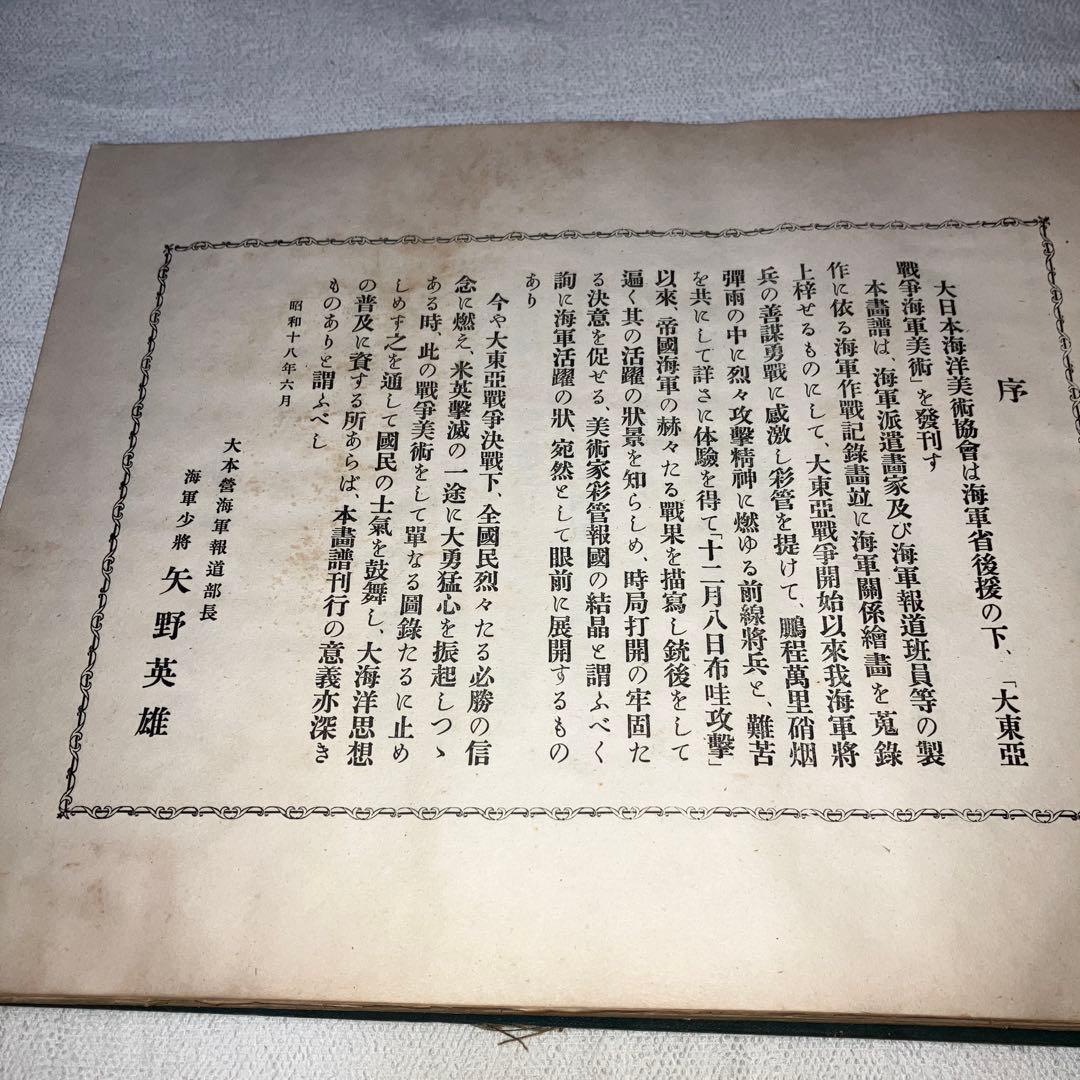 序
大日本海洋美術協會は海軍省後援の下、「大東亞
戰爭海軍美術」を發刊す
本畫譜は、海軍派遣畫家及び海軍報道班員等の製
作に依る海軍作戰記錄畫竝に海軍關係繪畫を蒐錄
上梓せるものにして、大東亞戰爭開始以來我海軍將
兵の善謀勇戰に感激し彩管を提げて、鵬程萬里硝烟
彈雨の中に烈々攻擊精神に燃ゆる前線將兵と、難苦
を共にして詳さに体驗を得て「十二月八日布哇攻擊」
以來、帝國海軍の赫々たる戰果を描寫し銃後をして
遍く其の活躍の狀景を知らしめ、時局打開の牢固た
る決意を促せる、美術家彩管報國の結晶と謂ふべく
詢に海軍活躍の狀、宛然として眼前に展開するもの
あり
今や大東亞戰爭決戰下、全國民烈々たる必勝の信
念に燃え、米英擊滅の一途に大勇猛心を振起しつゝ
ある時、此の戰爭美術をして單なる圖錄たるに止め
しめず之を通して國民の士氣を鼓舞し、大海洋思想
の普及に資する所あらば、本畫譜刊行の意義亦深き
ものありと謂ふべし
昭和十八年六月
大本營海軍報道部長
海軍少將 矢野英雄